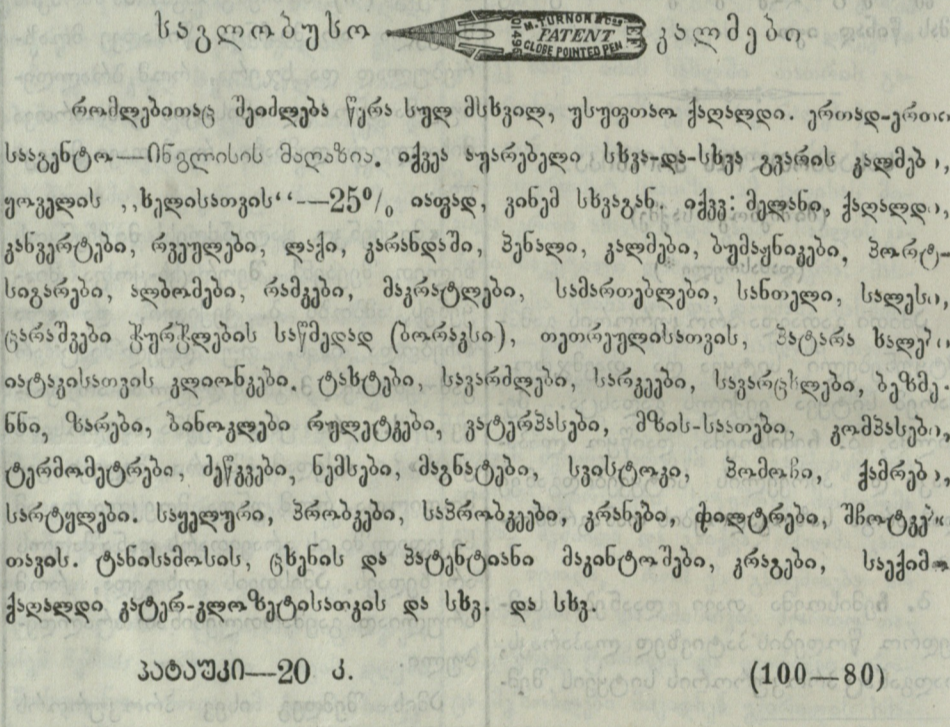 საგლობუსო M. TURNOR & Co PATENT GLOBE POINTED PEN კალმები
რომლებითაც შეიძლება წერა სულ მსხვილ, უსუფთაო ქაღალდი. ერთად-ერთი
სააგენტო—ინგლისის მაღაზია. იქვეა აუარებელი სხვა-და-სხვა გვარის კალმები,
ყოველის „ხელისათვის“—25% იაფად, ვინემ სხვაგან. იქვე: მელანი, ქაღალდი,
კანვერტები, რვეულები, ლაქი, კარანდაში, პენალი, კალმები, ბუმაჟნიკები, პორტ-
სიგარები, ალბომები, რამკები, მაკრატლები, სამართებლები, სანთელი, სალესი,
ცარაშვები ჭურჭლების საწმედად (ბორაკსი), თეთრეულისათვის, პატარა ხალები
იატაკისათვის კლიონკები. ტახტები, სავარძლები, სარკეები, სავარცხლები, ბეზმე-
ნნი, ზარები, ბინოკლები რულეტკები, ვატერპასები, მზის-საათები, კომპასები,
ტერმომეტრები, მეწკვები, ნემსები, მაგნატები, სვისტოკი, პომოჩი, ქამრები,
სარტყლები. საყელური, პრობკები, საპრობკეები, კრანები, ფილტრები, შჩოტკები
თავის. ტანისამოსის, ცხენის და პატენტიანი მაკინტოშები, კრაგები, საექიმო
ქაღალდი კატერ-კლოზეტისათვის და სხვ. და სხვ.
პატაუკი—20 კ. (100—80)